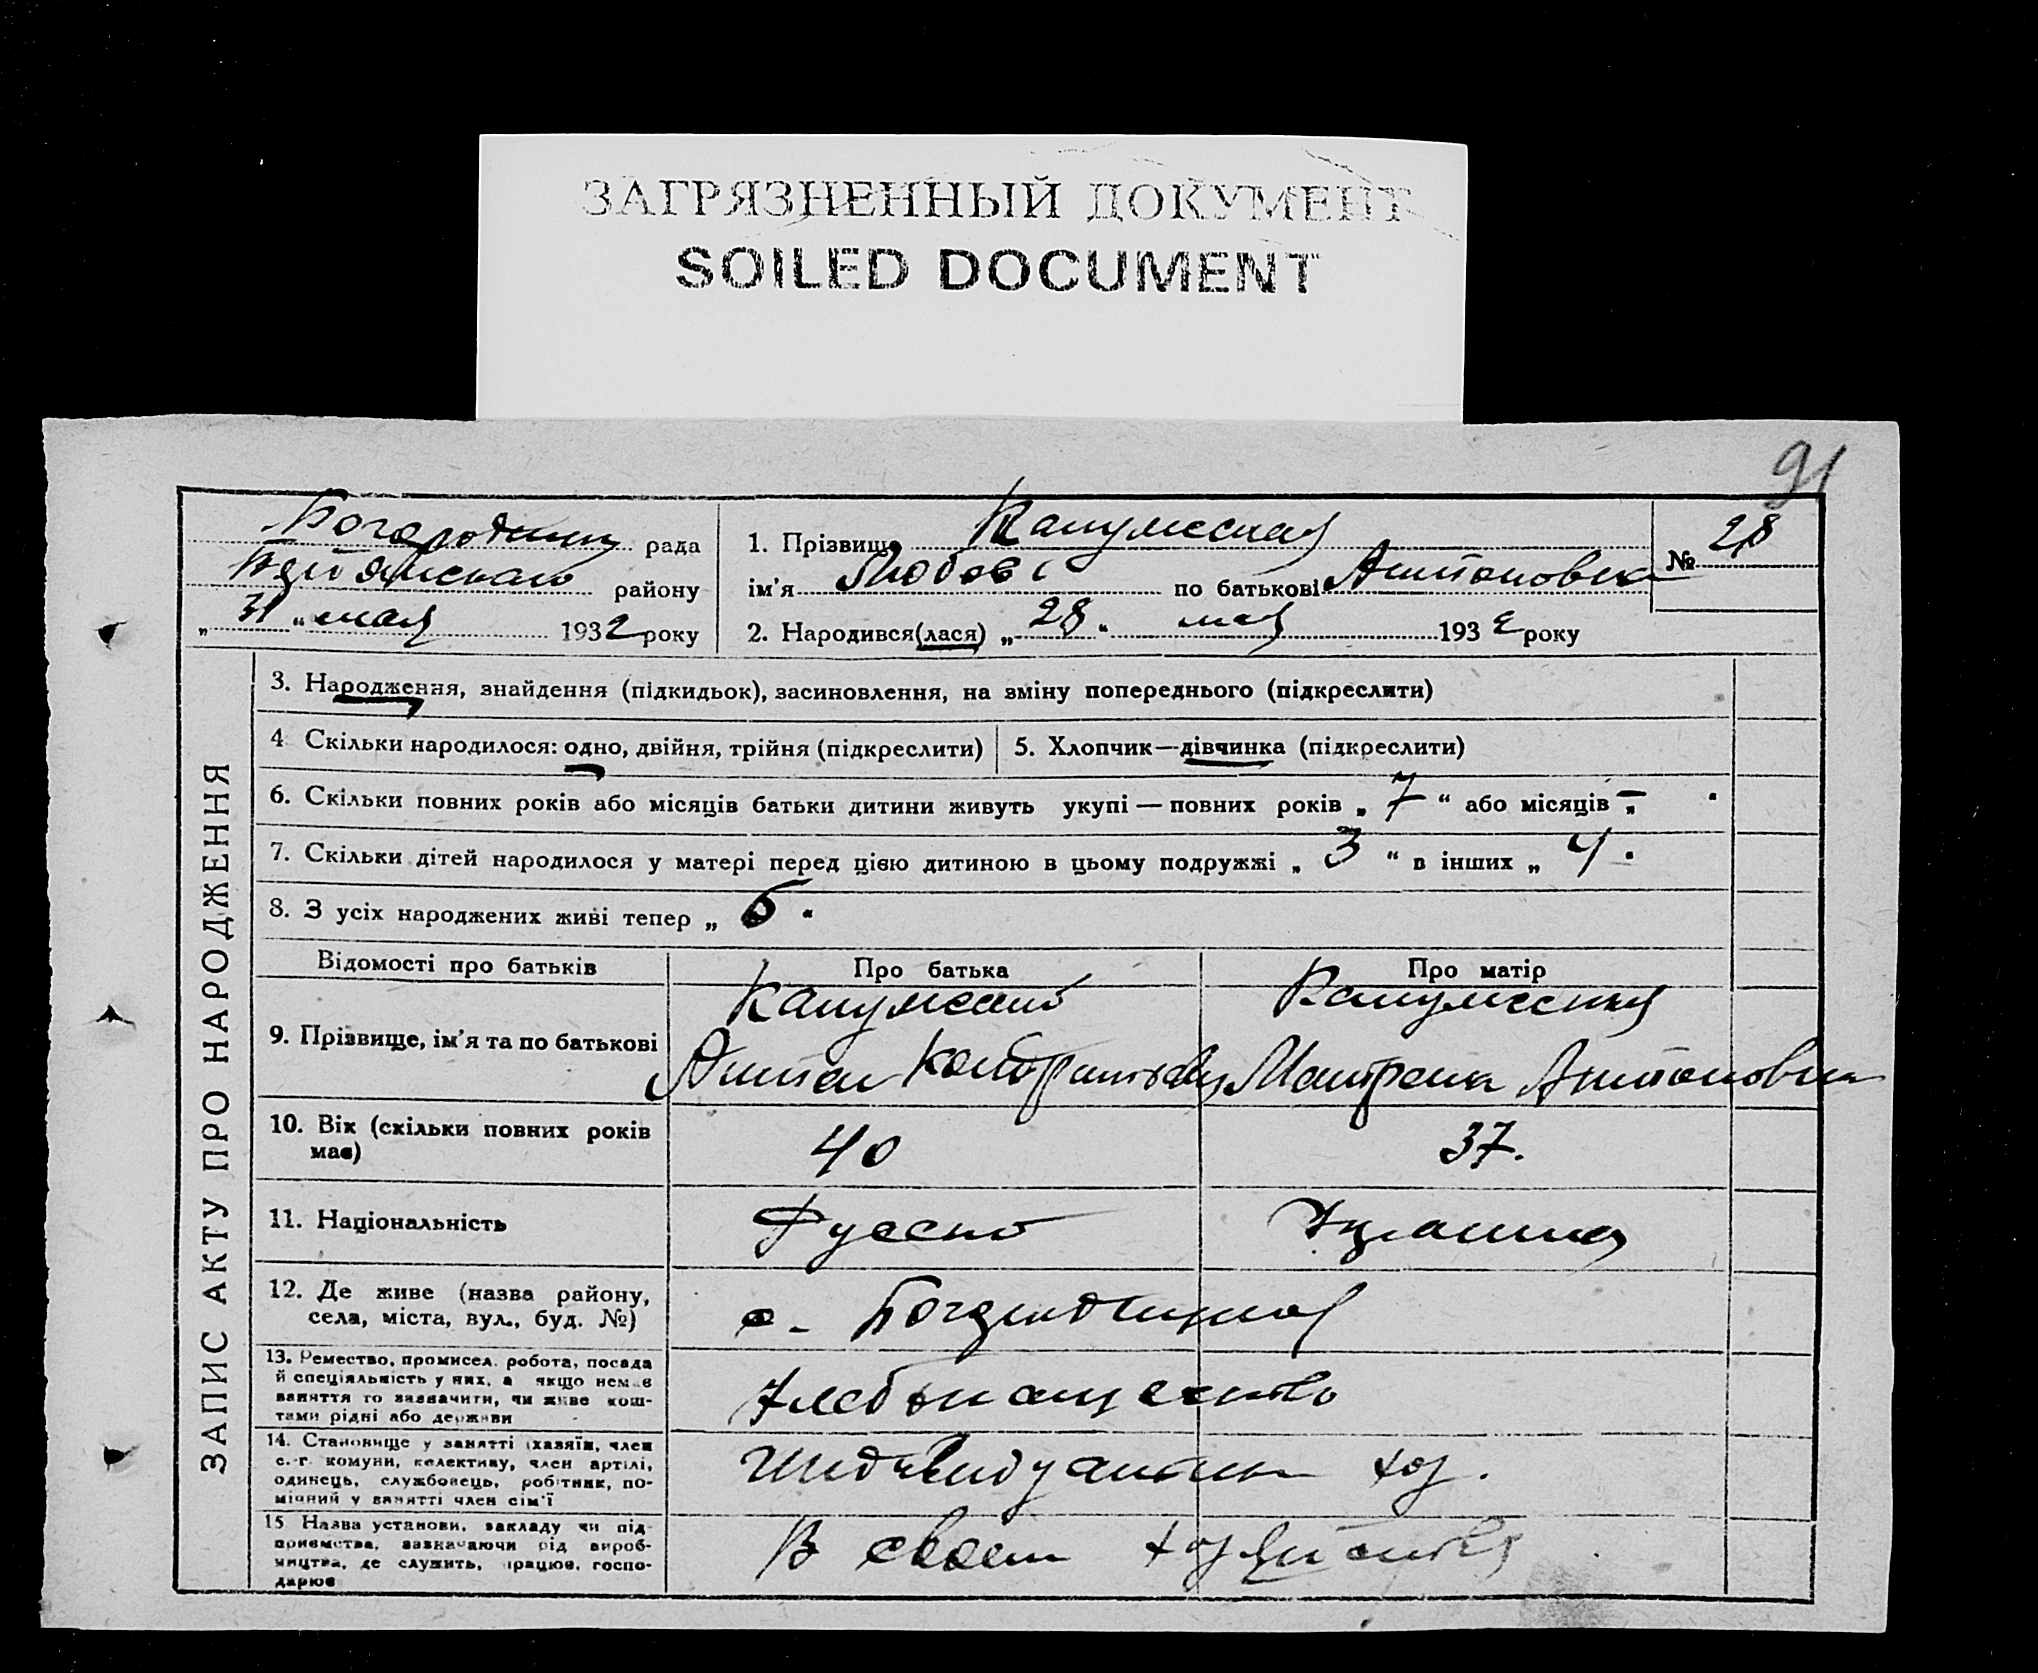 ЗАГРЯЗНЕННЫЙ ДОКУМЕНТ
SOILED DOCUMENT
91
рада
району
„31“ мая 1932 року
1. Прізвище
ім'я Любовь по батькові Антоновна
№ 28
2. Народився(лася) „28“ мая 1932 року
ЗАПИС АКТУ ПРО НАРОДЖЕННЯ
3. Народження, знайдення (підкидьок), засиновлення, на зміну попереднього (підкреслити)
4 Скільки народилося: одно, двійня, трійня (підкреслити)
5. Хлопчик—дівчинка (підкреслити)
6. Скільки повних років або місяців батьки дитини живуть укупі — повних років „7“ або місяців „–
7. Скільки дітей народилося у матері перед цією дитиною в цьому подружжі „3“ в інших „4.
8. З усіх народжених живі тепер „6“
Відомості про батьків
Про батька
Про матір
9. Прізвище, ім'я та по батькові
Антон Кондратьевич
Матрена Антоновна
10. Вік (скільки повних років
має)
40
37.
11. Національність
Русский
12. Де живе (назва району,
села, міста, вул., буд. №)
с.
13. Ремество, промисел, робота, посада
й спеціяльність у них, а якщо немає
заняття то зазначити, чи живе кош-
тами рідні або держави
Хлебопашество
14. Становище у занятті (хазяїн, член
с.-г. комуни, колективу, член артілі,
одинець, службовець, робітник, по-
мічний у занятті член сім'ї
хоз.
15 Назва установи, закладу чи під-
приємства, зазначаючи рід вироб-
ництва, де служить, працює, госпо-
дарює
В своем хозяйстве